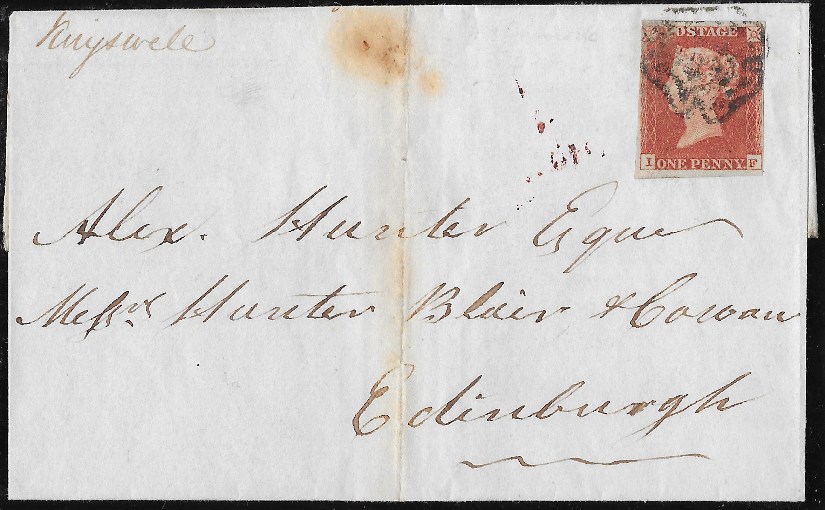 POSTAGE
I ONE PENNY. F
Alex. Hunter Esque
Messrs Hunter Blair & Cowan
Edinburgh